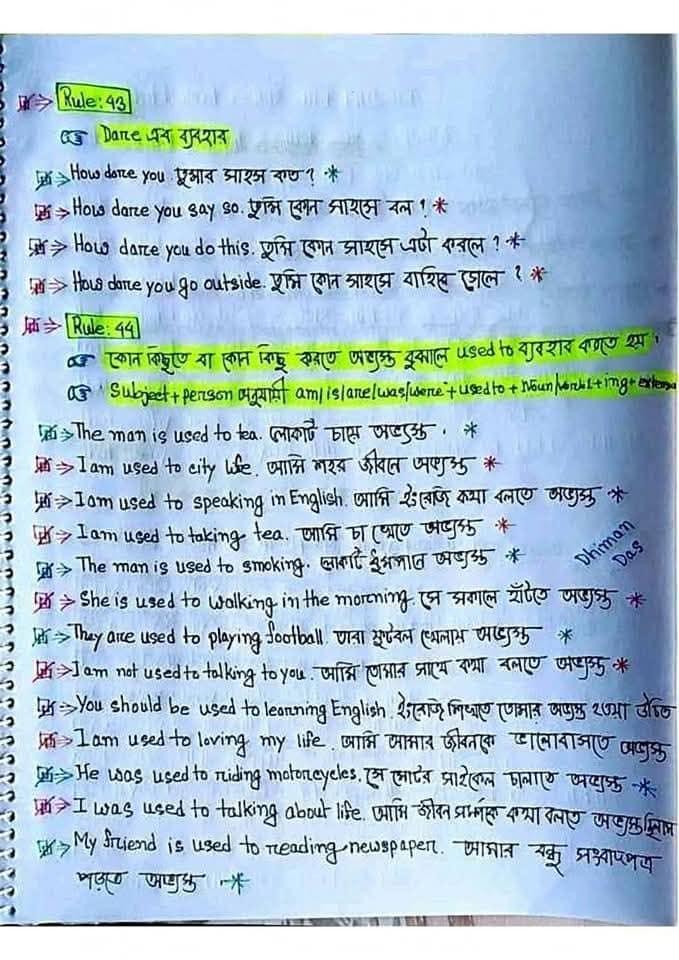 Rule: 43
Dare এর ব্যবহার
How dare you. তুমার সাহস কত ?
How dare you say so. তুমি কোন সাহসে বল !
How dare you do this. তুমি কোন সাহসে এটা করলে ?
How dare you go outside. তুমি কোন সাহসে বাহিরে গেলে ?
Rule: 44
কোন কিছুতে বা কোন কিছু করতে অভ্যস্ত বুঝালে used to ব্যবহার করতে হয় ।
Subject + person অনুযায়ী am/is/are/was/were + used to + Noun/verb1 + ing +
The man is used to tea. লোকটি চায়ে অভ্যস্ত .
I am used to city life. আমি শহর জীবনে অভ্যস্ত
I am used to speaking in English. আমি ইংরেজি কথা বলতে অভ্যস্ত
I am used to taking tea. আমি চা খেতে অভ্যস্ত
The man is used to smoking. লোকটি ধুমপানে অভ্যস্ত
Dhiman Das
She is used to walking in the morning. সে সকালে হাঁটতে অভ্যস্ত
They are used to playing football. তারা ফুটবল খেলায় অভ্যস্ত
I am not used to talking to you. আমি তোমার সাথে কথা বলতে অভ্যস্ত
You should be used to learning English. ইংরেজি শিখতে তোমার অভ্যস্ত হওয়া উচিত
I am used to loving my life. আমি আমার জীবনকে ভালোবাসতে অভ্যস্ত
He was used to riding motorcycles. সে মোটর সাইকেল চালাতে অভ্যস্ত
I was used to talking about life. আমি জীবন সম্পর্কে কথা বলতে অভ্যস্ত ছিলাম
My friend is used to reading newspaper. আমার বন্ধু সংবাদপত্র
পড়তে অভ্যস্ত .